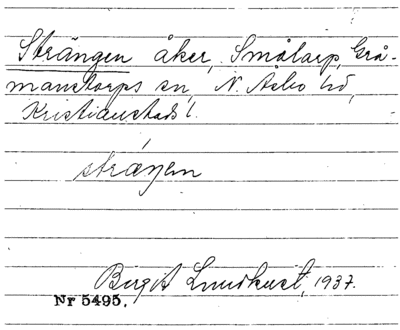 Strängen åker, Smålarp, Grå-
manstorps sn, N. Asbo hd,
Kristianstads l.
stræŋen
Birgit Lundkvist, 1937.
Nr 5495.